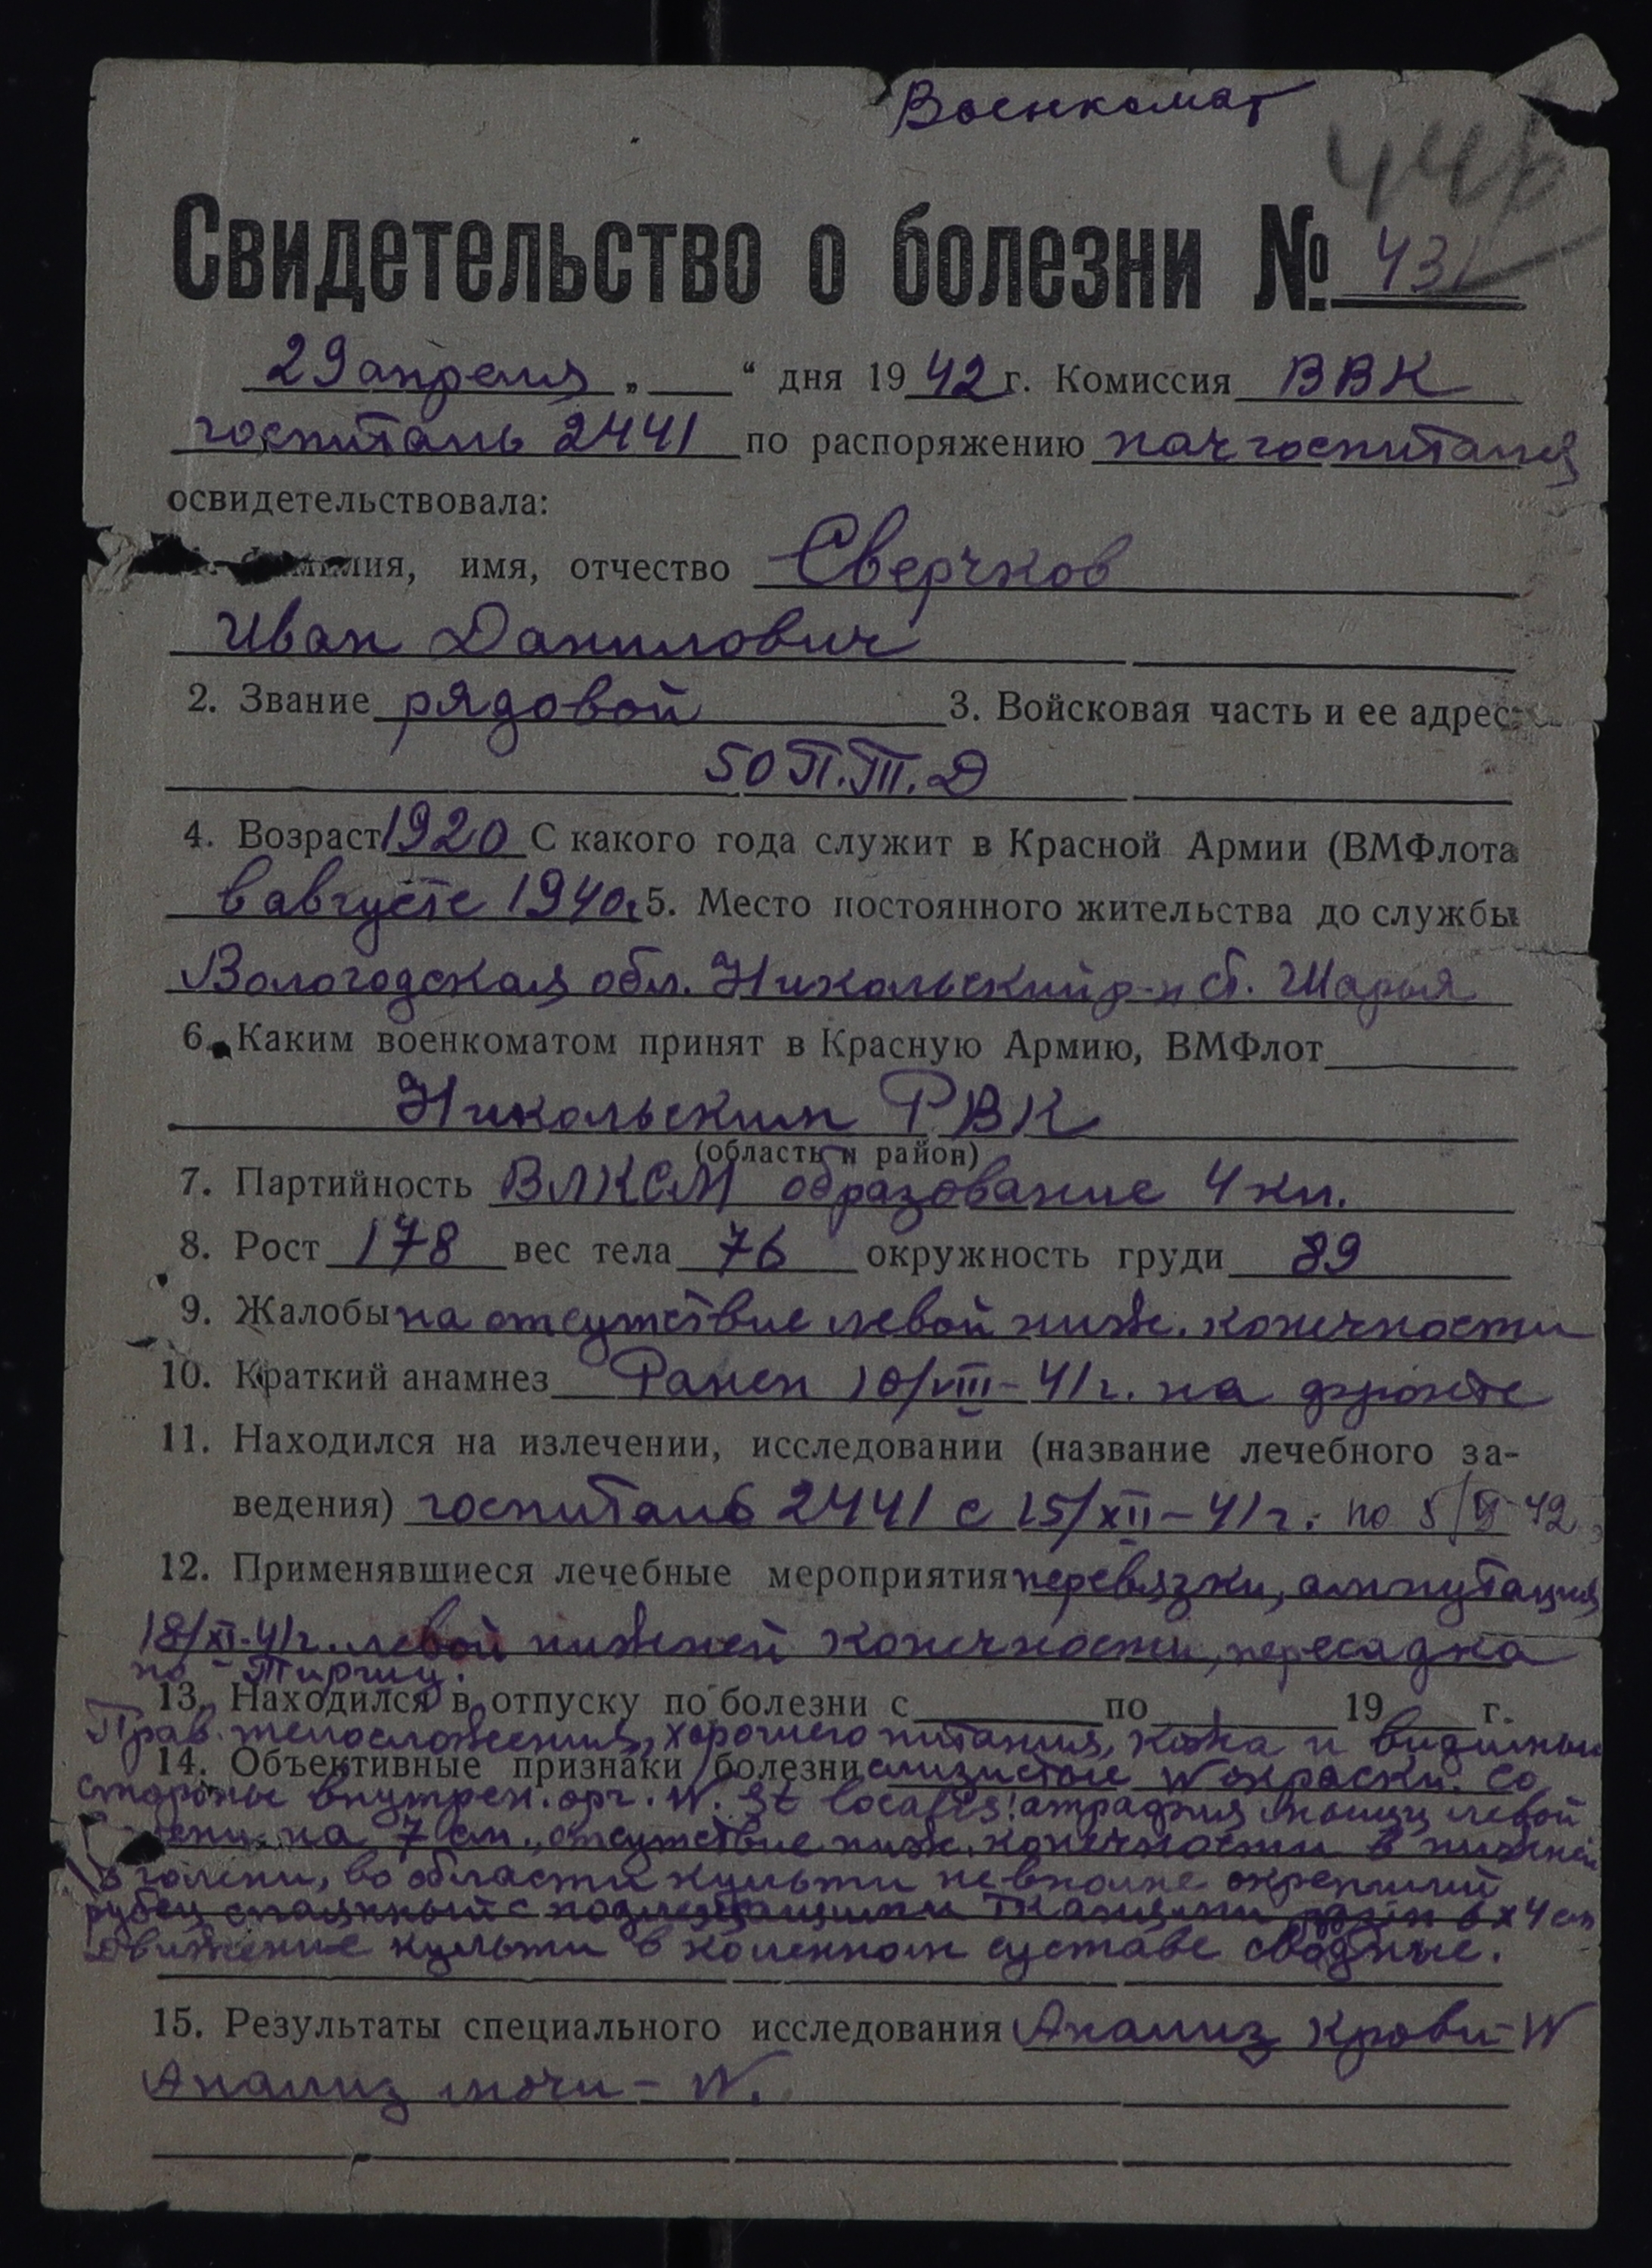 Военкомат
Свидетельство о болезни № 431
29 апреля „ “ дня 1942 г. Комиссия ВВК
госпиталь 2441 по распоряжению начгоспиталя
освидетельствовала:
имя, отчество Сверчков
Иван Данилович
2. Звание рядовой 3. Войсковая часть и ее адрес
50 П.Т.Д
4. Возраст 1920 С какого года служит в Красной Армии (ВМФлота
в августе 1940г 5. Место постоянного жительства до службы
Вологодская обл. Никольский р-н ст. Шарья
6. Каким военкоматом принят в Красную Армию, ВМФлот
Никольским РВК
(область и район)
7. Партийность ВЛКСМ образование 4 кл.
8. Рост 178 вес тела 76 окружность груди 89
9. Жалобы на отсутствие левой ниж. конечности
10. Краткий анамнез Ранен 10/VIII-41г. на фронте
11. Находился на излечении, исследовании (название лечебного за-
ведения) госпиталь 2441 с 15/XII-41г. по 5/ 42
12. Применявшиеся лечебные мероприятия перевязки, ампутация
18/XI-41г. левой нижней конечности, пересадка
по Тиршу.
13. Находился в отпуску по болезни с по 19 г.
Прав. телосложения, хорошего питания, кожа и видимые
14. Объективные признаки болезни слизистые N окраски. Со
стороны внутрен. орг. N. St. localis: атрафия мышц левой
на 7 см., отсутствие ниж. конечности в нижней
голени, во области культи не вполне окрепший
рубец спаянный с подлежащими тканями разм 6х4 см
движение культи в коленном суставе свободные.
15. Результаты специального исследования Анализ крови - N
Анализ мочи - N.